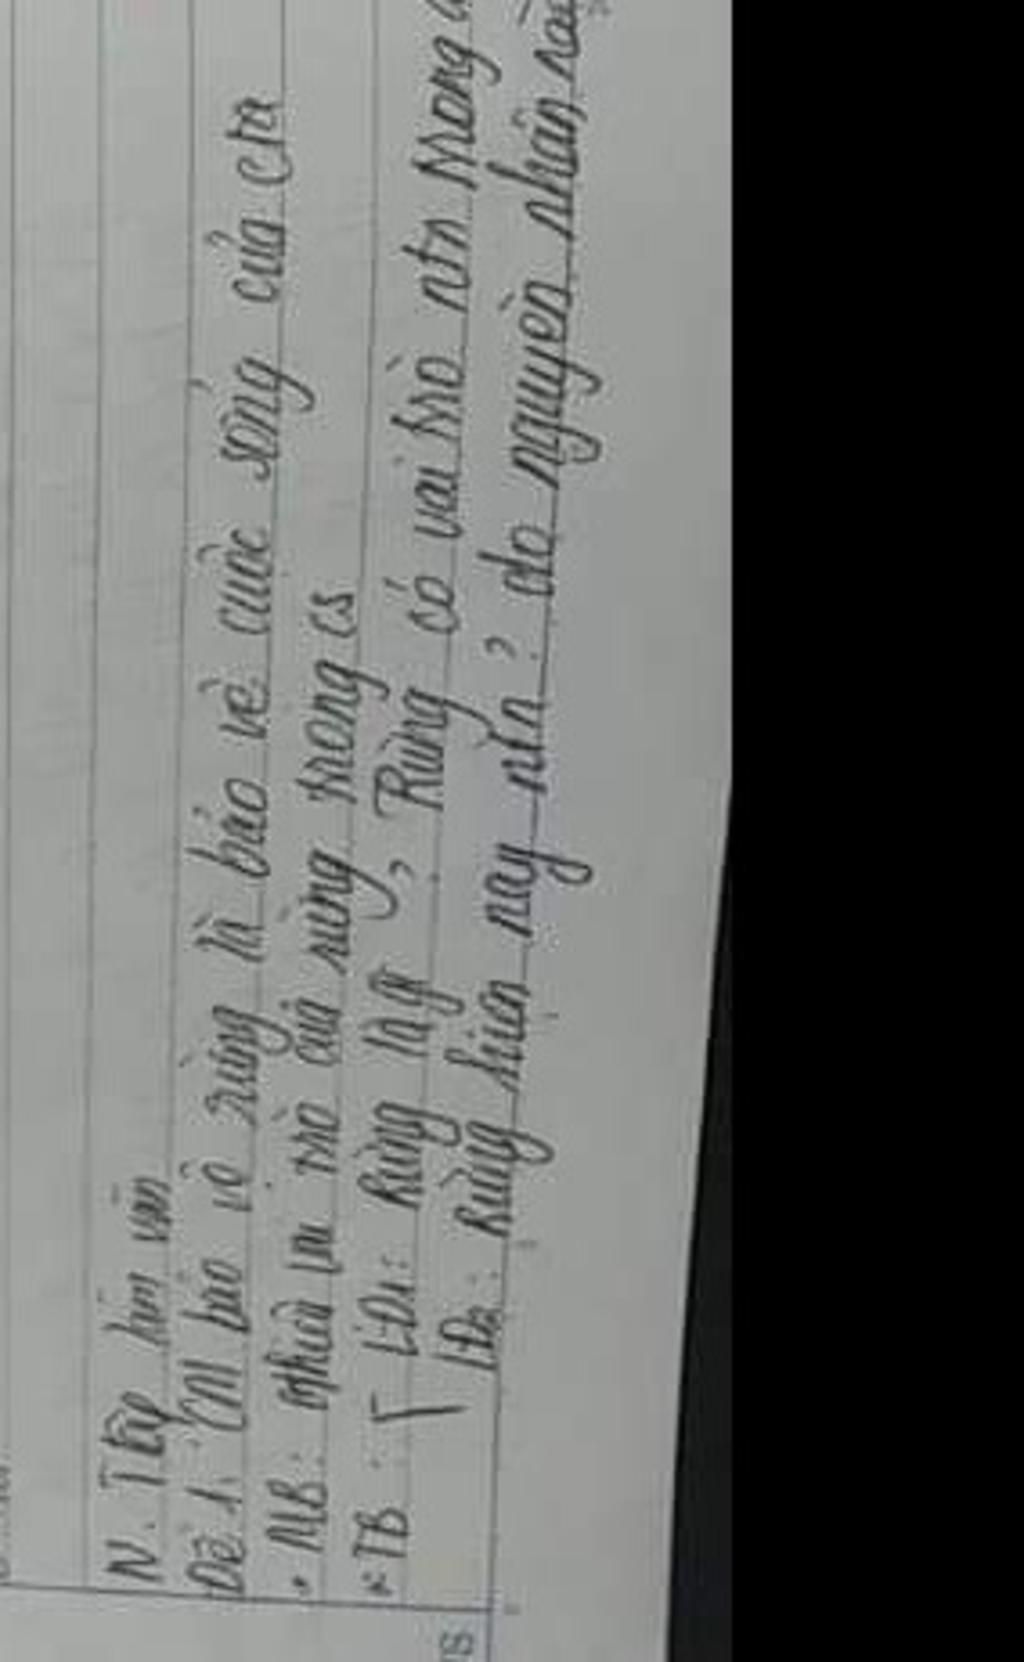 IV. Tập làm văn
Đề 1: CM bảo vệ rừng là bảo vệ cuộc sống của cta
• MB: vai trò của rừng trong cs
* TB: LĐ1: Rừng là gì, Rừng có vai trò ntn trong
LĐ2: Rừng hiện nay ntn? do nguyên nhân nào